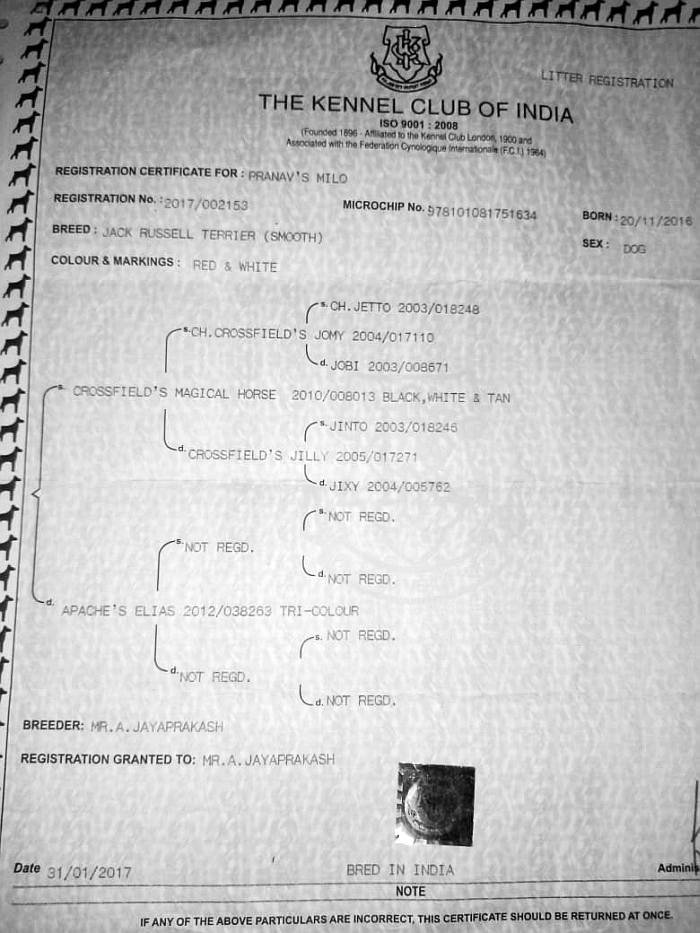 LITTER REGISTRATION
THE KENNEL CLUB OF INDIA
ISO 9001 : 2008
(Founded 1896 - Affiliated to the Kennel Club London, 1900 and
Associated with the Federation Cynologique Internationale (F.C.I.) 1964)
REGISTRATION CERTIFICATE FOR : PRANAV'S MILO
REGISTRATION No. : 2017/002153 MICROCHIP No. 978101081751634 BORN : 20/11/2016
BREED : JACK RUSSELL TERRIER (SMOOTH) SEX : DOG
COLOUR & MARKINGS : RED & WHITE
s. CH.JETTO 2003/018248
s. CH.CROSSFIELD'S JOMY 2004/017110
d. JOBI 2003/008671
s. CROSSFIELD'S MAGICAL HORSE 2010/008013 BLACK,WHITE & TAN
s. JINTO 2003/018246
d. CROSSFIELD'S JILLY 2005/017271
d. JIXY 2004/005762
s. NOT REGD.
s. NOT REGD.
d. NOT REGD.
d. APACHE'S ELIAS 2012/038263 TRI-COLOUR
s. NOT REGD.
d. NOT REGD.
d. NOT REGD.
BREEDER: MR.A.JAYAPRAKASH
REGISTRATION GRANTED TO: MR.A.JAYAPRAKASH
Date 31/01/2017 BRED IN INDIA Adminis
NOTE
IF ANY OF THE ABOVE PARTICULARS ARE INCORRECT, THIS CERTIFICATE SHOULD BE RETURNED AT ONCE.